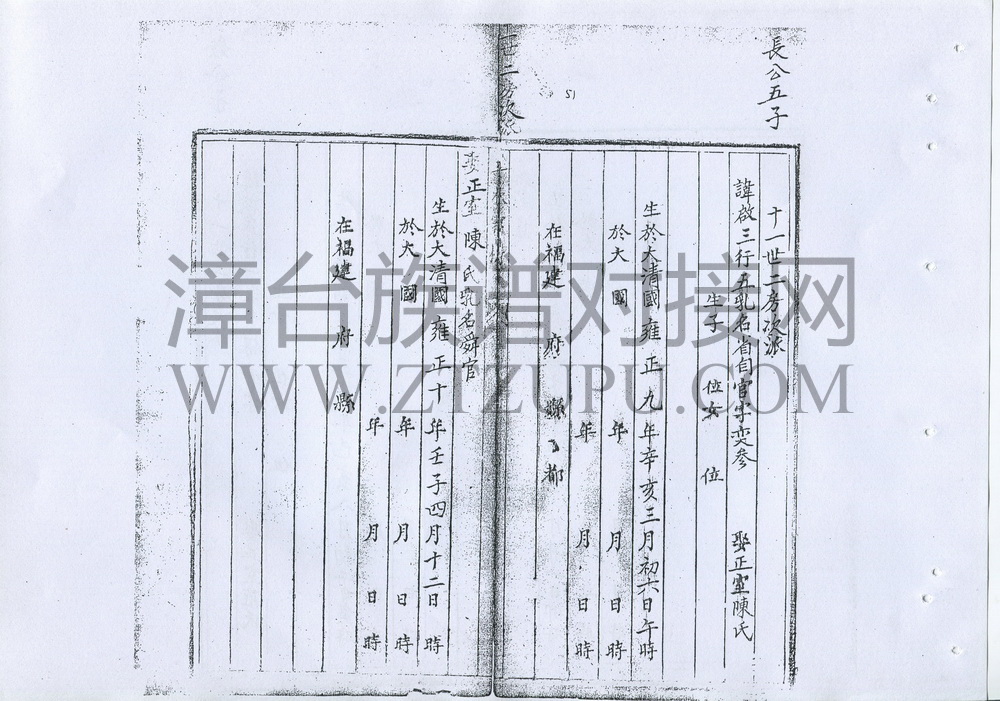 長公五子
十一世二房次派
諱啟三行五乳名省自官字奕参
娶正室陳氏
生子 位女 位
生於大清國雍正九年辛亥三月初六日午時
於大 國 年 月 日 時
年 月 日 時
在福建 府 縣 都
世二房次派
51
娶正室陳氏乳名舜官
生於大清國雍正十年壬子四月十二日 時
於大 國 年 月 日 時
年 月 日 時
在福建 府 縣
漳台族谱对接网
WWW.ZTZUPU.COM